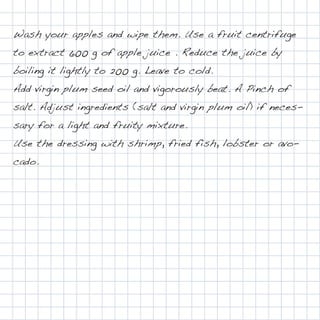 Wash your apples and wipe them. Use a fruit centrifuge
to extract 600 g of apple juice . Reduce the juice by
boiling it lightly to 200 g. Leave to cold.
Add virgin plum seed oil and vigorously beat. A Pinch of
salt. Adjust ingredients (salt and virgin plum oil) if neces-
sary for a light and fruity mixture.
Use the dressing with shrimp, fried fish, lobster or avo-
cado.